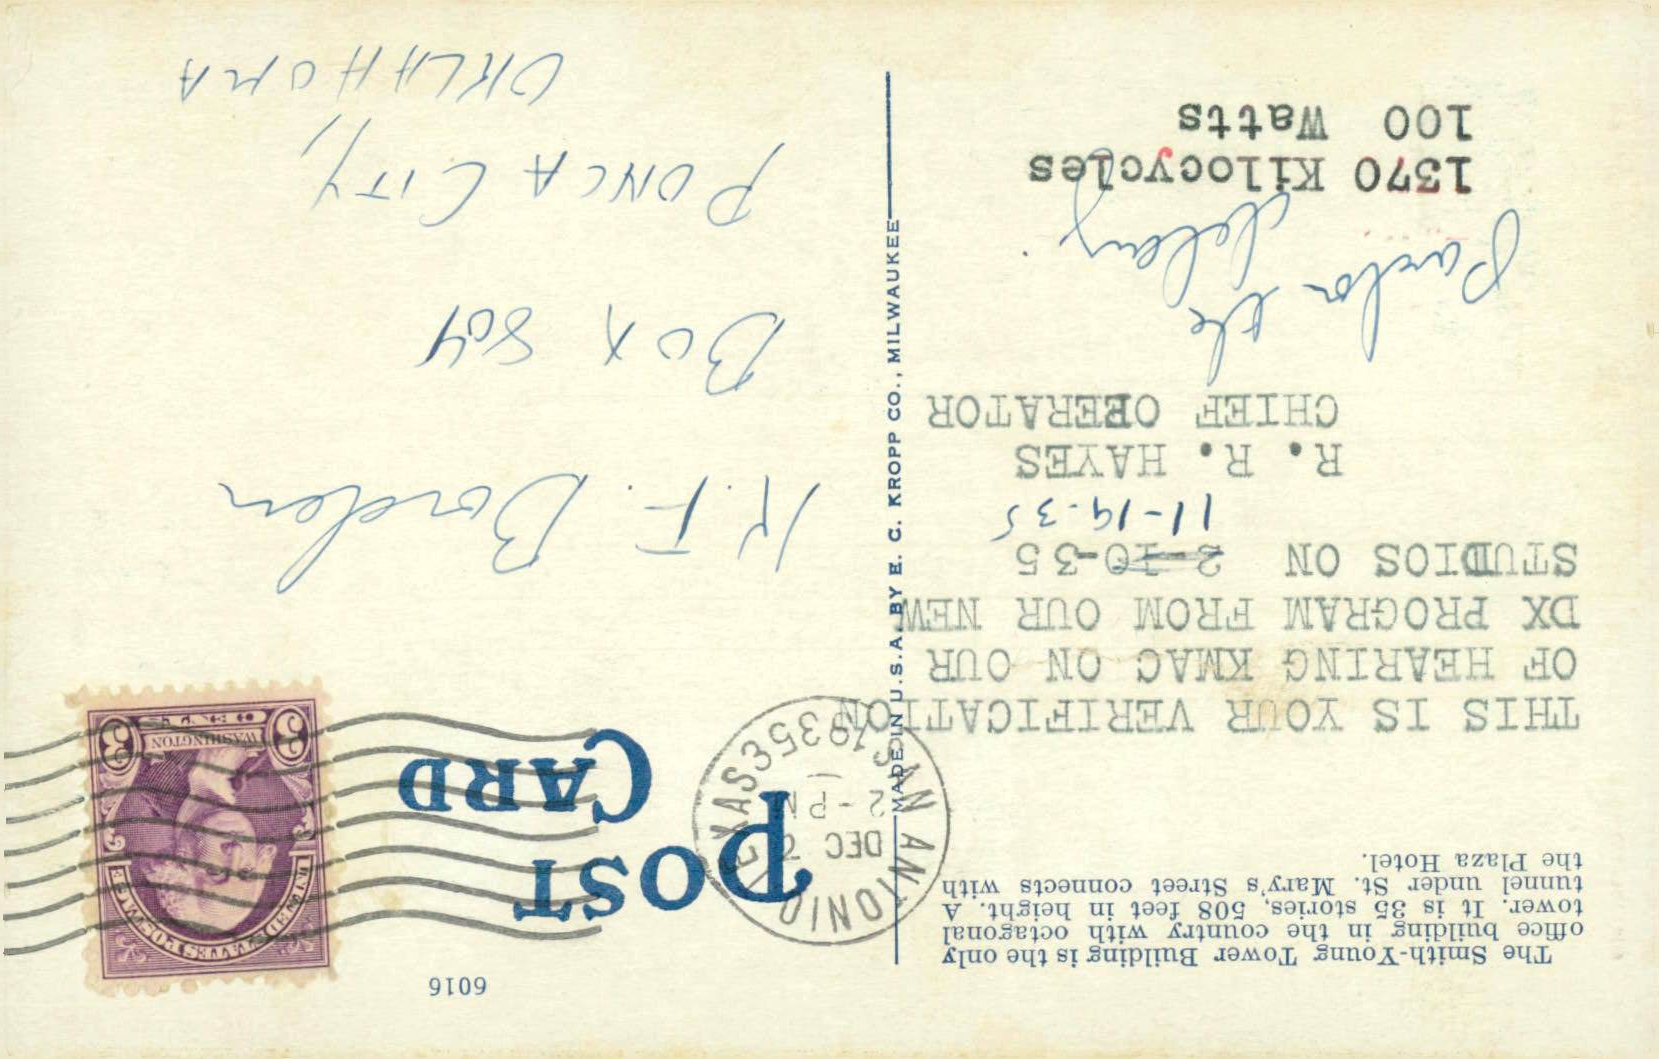 The Smith-Young Tower Building is the only
office building in the country with octagonal
tower. It is 35 stories, 508 feet in height. A
tunnel under St. Mary's Street connects with
the Plaza Hotel.
THIS IS YOUR VERIFICATION
OF HEARING KMAC ON OUR
DX PROGRAM FROM OUR NEW
STUDIOS ON 2-10-35
11-19-35
R. R. HAYES
CHIEF OPERATOR
Pardon the
delay
1370 Kilocycles
100 Watts
MADE IN U.S.A. BY E. C. KROPP CO., MILWAUKEE
6016
POST
CARD
SAN ANTONIO TEXAS
DEC 2
2-PM
1935
UNITED STATES POSTAGE
WASHINGTON
3 3
K. F. Borden
Box 804
PONCA CITY,
OKLAHOMA